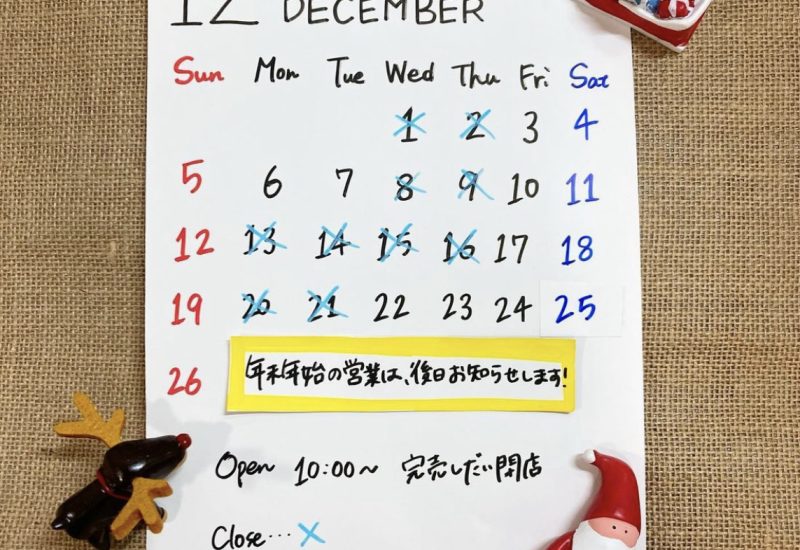 12 DECEMBER
Sun Mon Tue Wed Thu Fri Sat
1 2 3 4
5 6 7 8 9 10 11
12 13 14 15 16 17 18
19 20 21 22 23 24 25
26 年末年始の営業は、後日お知らせします!
Open 10:00~ 完売しだい閉店
Close…×